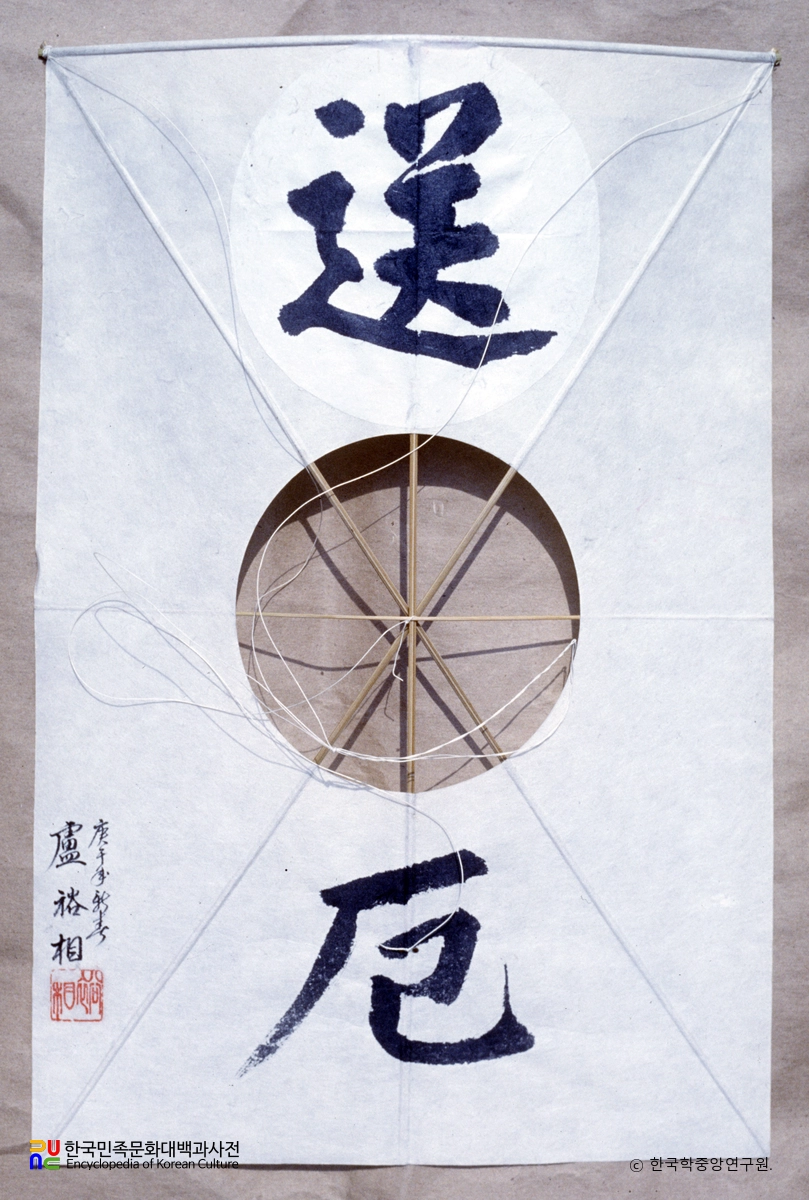 送
厄
庚午年新春
盧裕相
裕相
한국민족문화대백과사전
Encyclopedia of Korean Culture
© 한국학중앙연구원.